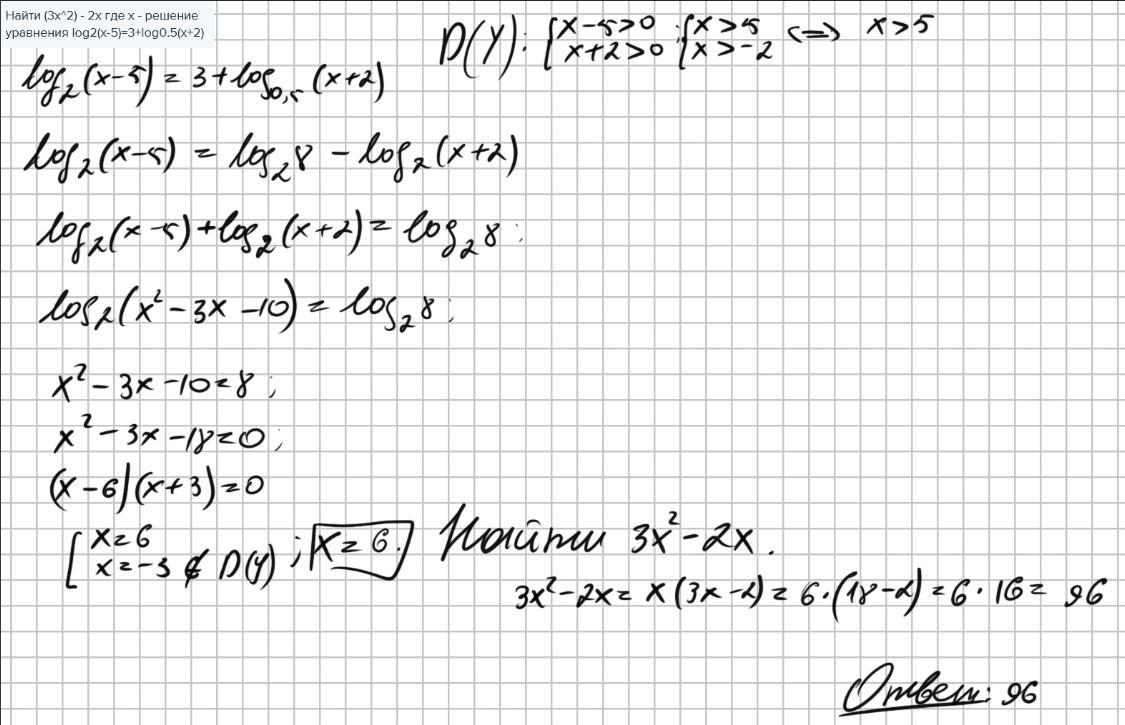 Найти (3x^2) - 2x где x - решение
уравнения log2(x-5)=3+log0.5(x+2)
D(y): { x-5>0 x+2>0 ; { x>5 x>-2 <=> x>5
log₂(x-5) = 3+log₀,₅(x+2)
log₂(x-5) = log₂8 - log₂(x+2)
log₂(x-5)+log₂(x+2) = log₂8;
log₂(x²-3x-10) = log₂8;
x²-3x-10=8;
x²-3x-18=0;
(x-6)(x+3)=0
[ x=6 x=-3 ∉ D(y) ; x=6.
Найти 3x²-2x.
3x²-2x= x(3x-2) = 6·(18-2) = 6·16= 96
Ответ: 96